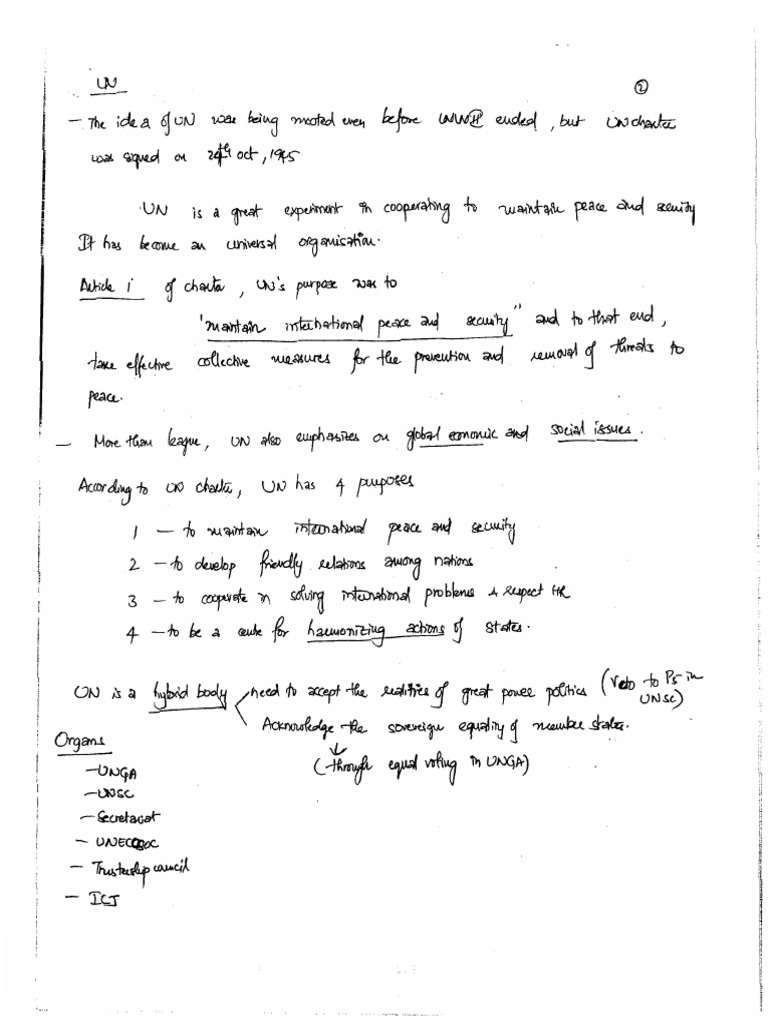 UN
②
- The idea of UN was being mooted even before WWII ended, but UN charter
was signed on 24th oct, 1945
UN is a great experiment in cooperating to maintain peace and security
It has become an universal organisation.
Article 1 of charter, UN's purpose was to
"maintain international peace and security" and to that end,
take effective collective measures for the prevention and removal of threats to
peace.
- More than league, UN also emphasizes on global economic and social issues.
According to UN charter, UN has 4 purposes
1 - to maintain international peace and security
2 - to develop friendly relations among nations
3 - to cooperate in solving international problems & respect HR
4 - to be a centre for harmonizing actions of states.
UN is a hybrid body need to accept the realities of great power politics (Veto to P5 in UNSC)
Acknowledge the sovereign equality of member states.
(through equal voting in UNGA)
Organs
- UNGA
- UNSC
- Secretariat
- UNECOSOC
- Trusteeship council
- ICJ